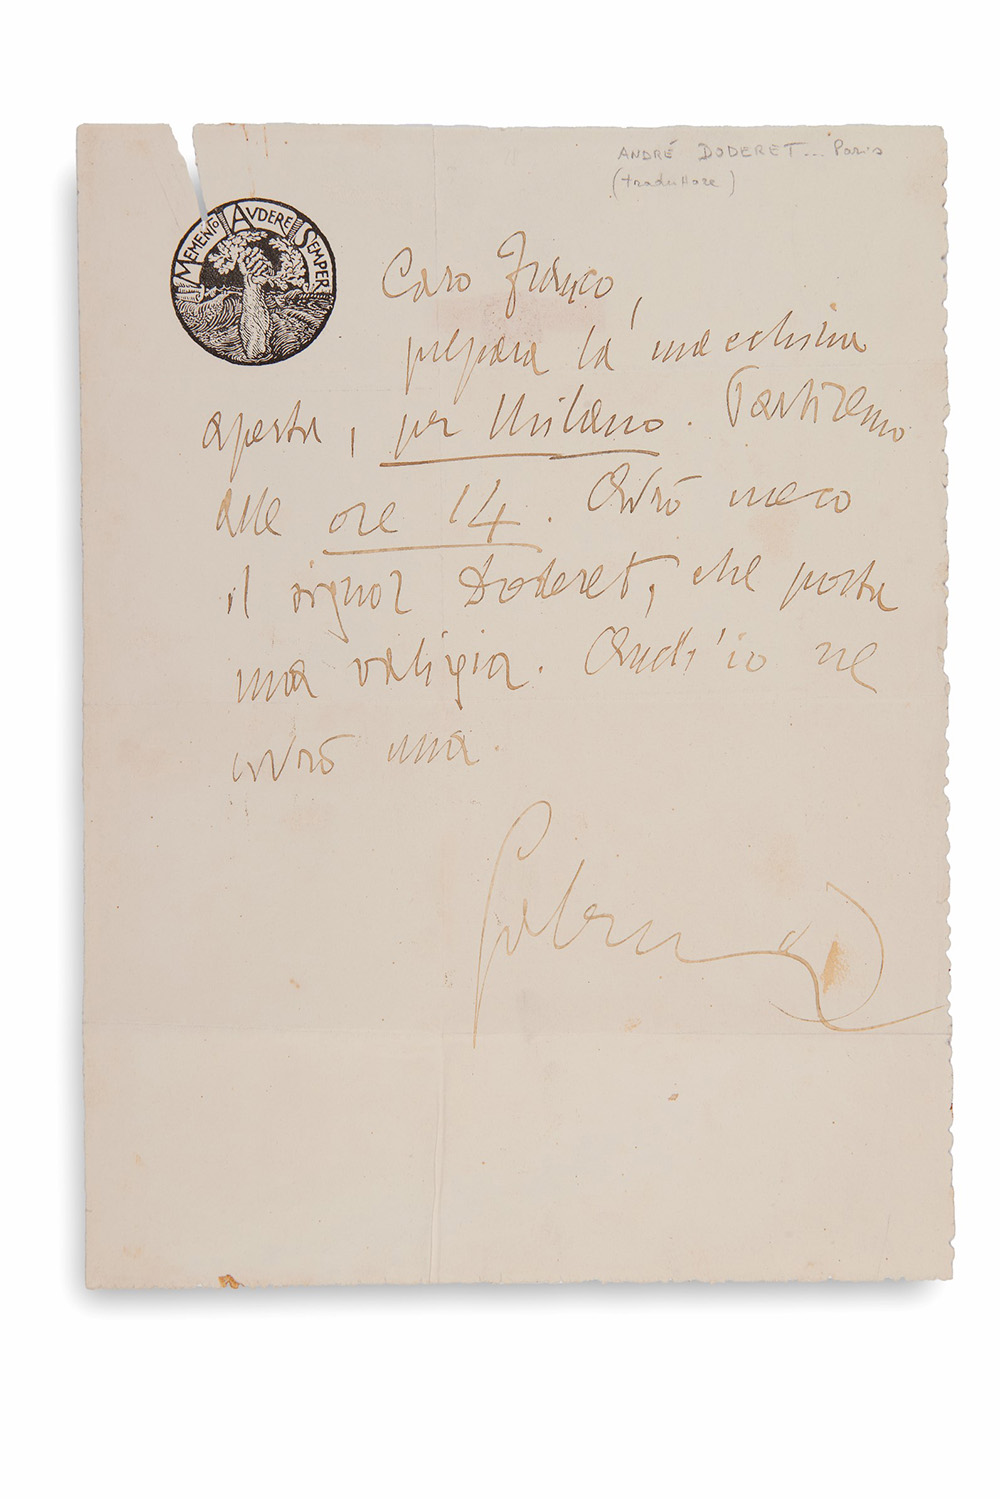 ANDRÉ DODERET... Paris
(traduttore)
MEMENTO AVDERE SEMPER
Caro Franco,
prepara la macchina
aperta, per Milano. Partiremo
alle ore 14. Avrò meco
il signor Doderet, che porta
una valigia. Anch'io ne
avrò una.
Gabriele d